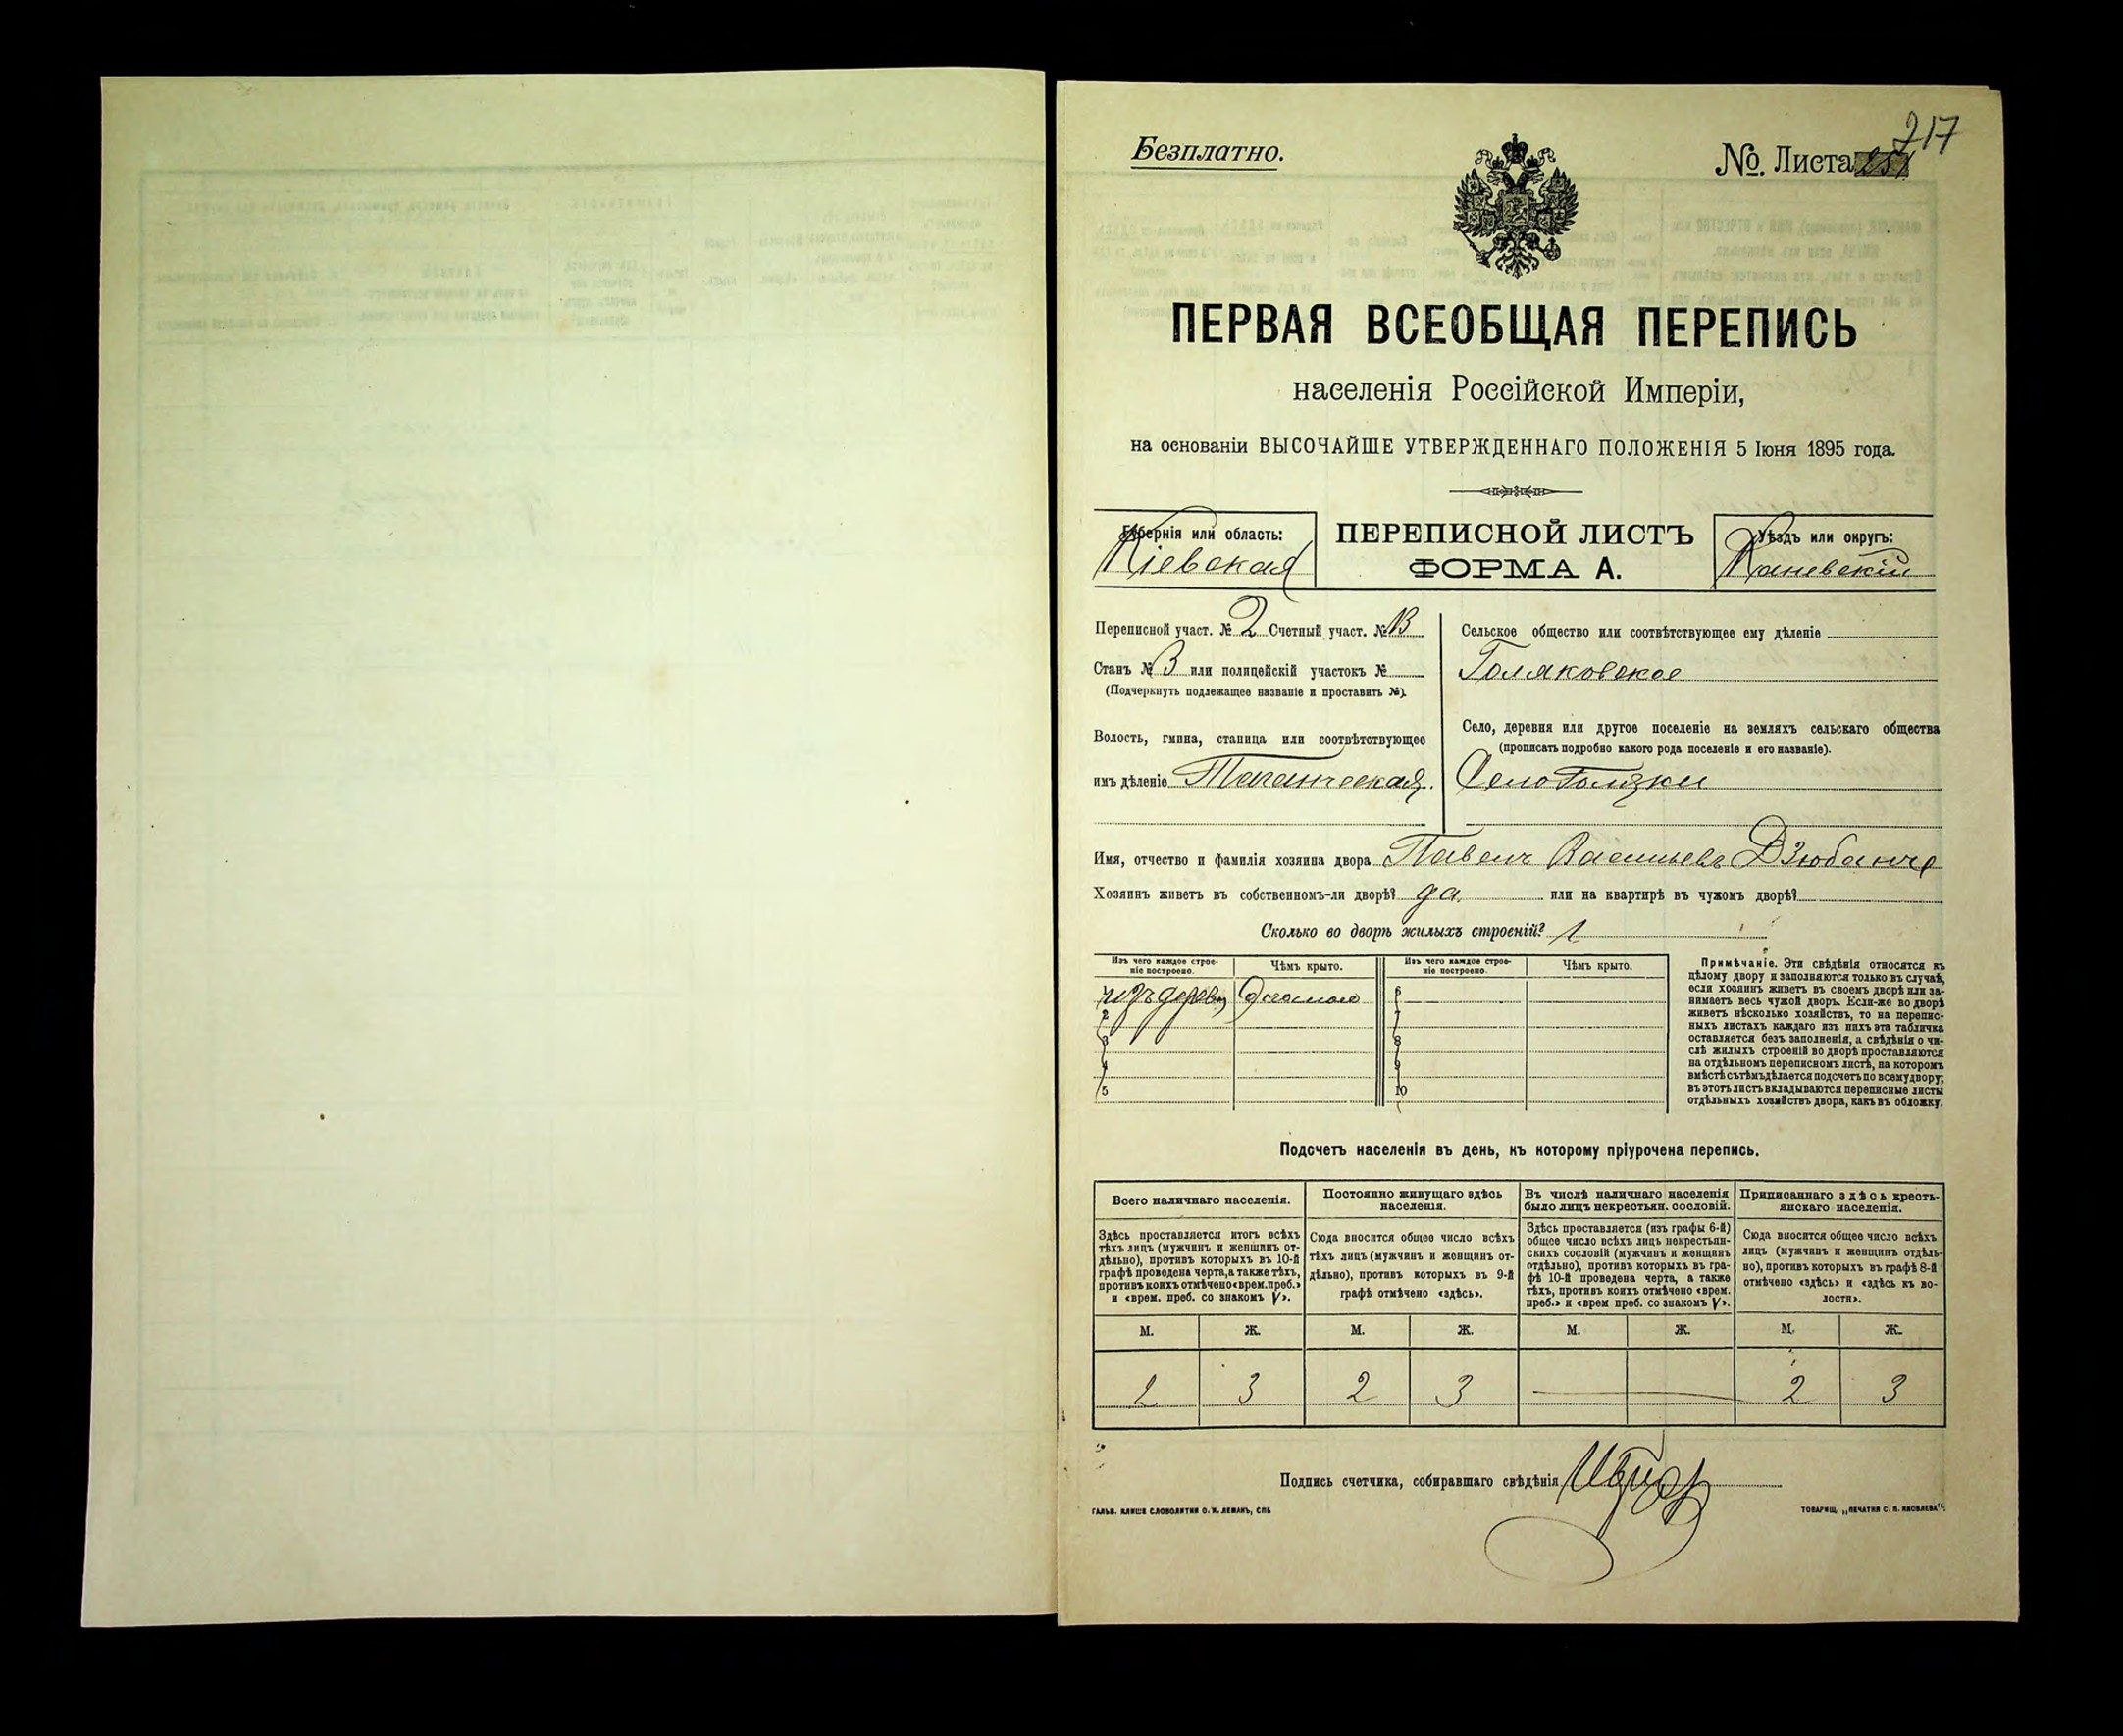 Безплатно.
№. Листа 217
ПЕРВАЯ ВСЕОБЩАЯ ПЕРЕПИСЬ
населенія Россійской Имперіи,
на основаніи ВЫСОЧАЙШЕ УТВЕРЖДЕННАГО ПОЛОЖЕНІЯ 5 Іюня 1895 года.
Губернія или область:
Кіевская
ПЕРЕПИСНОЙ ЛИСТЪ
ФОРМА А.
Уѣздъ или округъ:
Каневскій
Переписной участ. № 2 Счетный участ. №
Станъ № 3 или полицейскій участокъ №
(Подчеркнуть подлежащее названіе и проставить №).
Волость, гмина, станица или соотвѣтствующее
имъ дѣленіе Таганчская.
Сельское общество или соотвѣтствующее ему дѣленіе
Голяковское
Село, деревня или другое поселеніе на земляхъ сельскаго общества
(прописать подробно какого рода поселеніе и его названіе).
Село Голяки
Имя, отчество и фамилія хозяина двора Павелъ Васильевъ
Хозяинъ живетъ въ собственномъ-ли дворѣ? да. или на квартирѣ въ чужомъ дворѣ?
Сколько во дворѣ жилыхъ строеній? 1
Изъ чего каждое строе-
ніе построено.
Чѣмъ крыто.
Изъ чего каждое строе-
ніе построено.
Чѣмъ крыто.
1 изъ дерева
2
3
4
5
6
7
8
9
10
Примѣчаніе. Эти свѣдѣнія относятся къ
цѣлому двору и заполняются только въ случаѣ,
если хозяинъ живетъ въ своемъ дворѣ или за-
нимаетъ весь чужой дворъ. Если-же во дворѣ
живетъ нѣсколько хозяйствъ, то на перепис-
ныхъ листахъ каждаго изъ нихъ эта табличка
оставляется безъ заполненія, а свѣдѣнія о чи-
слѣ жилыхъ строеній во дворѣ проставляются
на отдѣльномъ переписномъ листѣ, на которомъ
вмѣстѣ съ тѣмъ дѣлается подсчетъ по всему двору;
въ этотъ листъ вкладываются переписные листы
отдѣльныхъ хозяйствъ двора, какъ въ обложку.
Подсчетъ населенія въ день, къ которому пріурочена перепись.
Всего наличнаго населенія.
Здѣсь проставляется итогъ всѣхъ
тѣхъ лицъ (мужчинъ и женщинъ от-
дѣльно), противъ которыхъ въ 10-й
графѣ проведена черта, а также тѣхъ,
противъ коихъ отмѣчено «врем. преб.»
и «врем. преб. со знакомъ V».
Постоянно живущаго здѣсь
населенія.
Сюда вносится общее число всѣхъ
тѣхъ лицъ (мужчинъ и женщинъ от-
дѣльно), противъ которыхъ въ 9-й
графѣ отмѣчено «здѣсь».
Въ числѣ наличнаго населенія
было лицъ некрестьян. сословій.
Здѣсь проставляется (изъ графы 6-й)
общее число всѣхъ лицъ некрестьян-
скихъ сословій (мужчинъ и женщинъ
отдѣльно), противъ которыхъ въ гра-
фѣ 10-й проведена черта, а также
тѣхъ, противъ коихъ отмѣчено «врем.
преб.» и «врем преб. со знакомъ V».
Приписаннаго здѣсь кресть-
янскаго населенія.
Сюда вносится общее число всѣхъ
лицъ (мужчинъ и женщинъ отдѣль-
но), противъ которыхъ въ графѣ 8-й
отмѣчено «здѣсь» и «здѣсь къ во-
лости».
М. Ж. М. Ж. М. Ж. М. Ж.
2 3 2 3 — — 2 3
Подпись счетчика, собиравшаго свѣдѣнія
ГАЛЬВ. КЛИШЕ СЛОВОЛИТНИ О. И. ЛЕМАНЪ, СПБ
ТОВАРИЩ. „ПЕЧАТНЯ С. П. ЯКОВЛЕВА“.